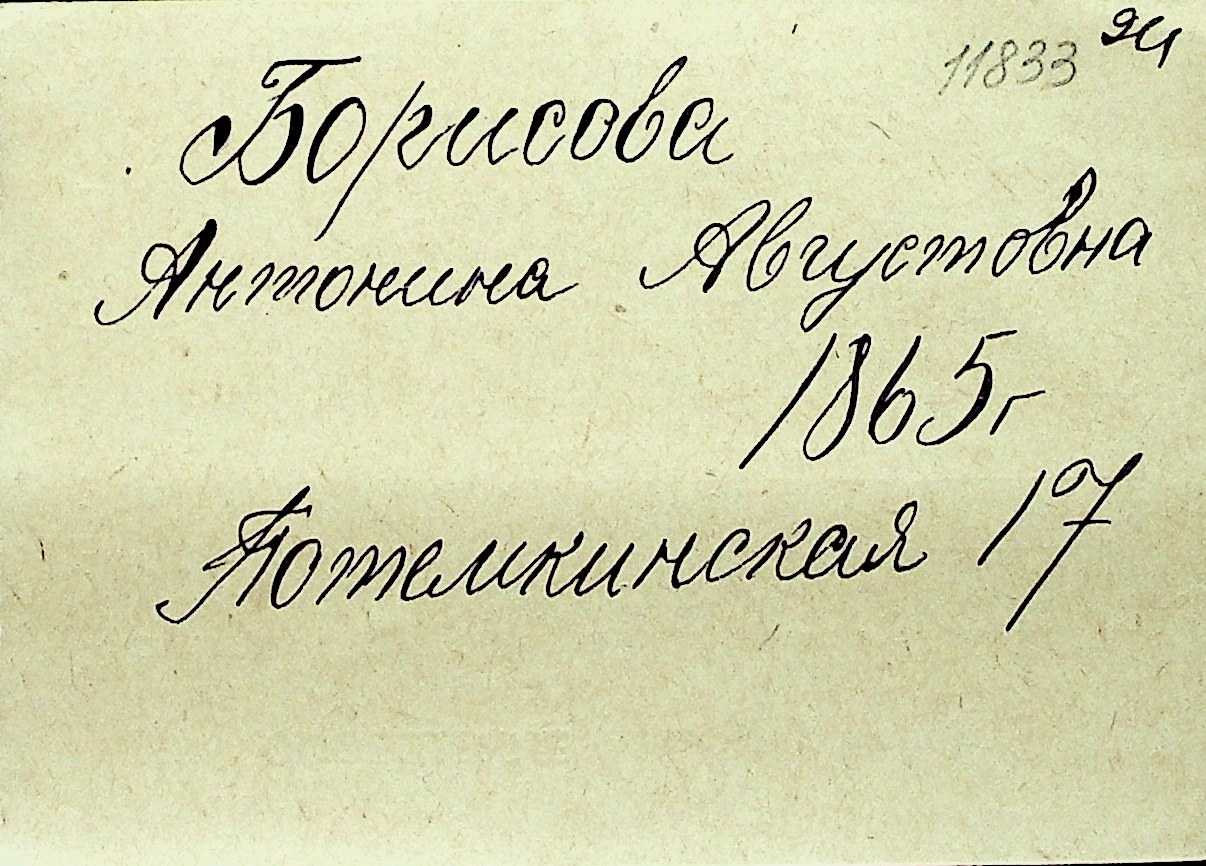 11833
Борисова
Антонина Августовна
1865г
Потемкинская 17